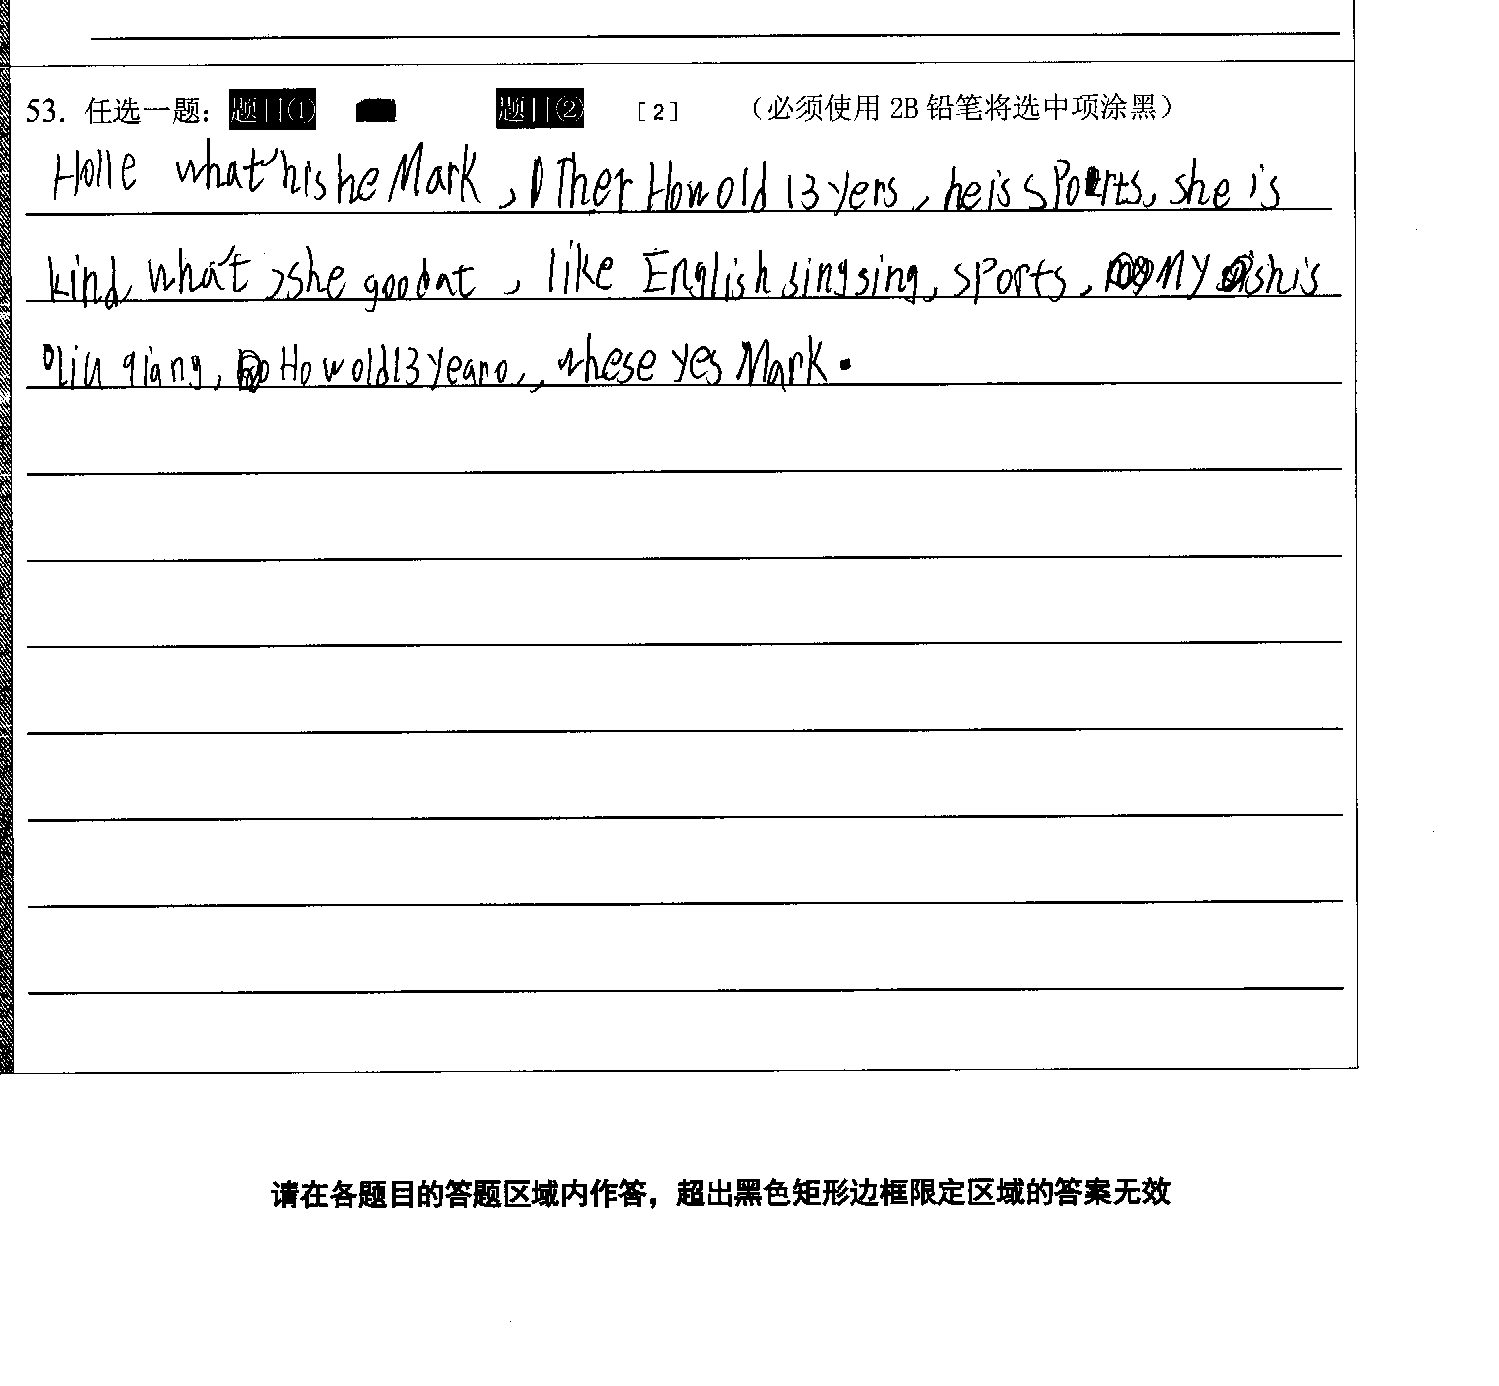 53. 任选一题： 题目① 题目② [2] （必须使用 2B 铅笔将选中项涂黑）
Holle what'his he Mark , Ther How old 13 yers , he is sports, she is
kind, what , she good at , like English singsing, sports , MY shis
liu qiang, How old 13 yearo,, whese yes Mark.
请在各题目的答题区域内作答，超出黑色矩形边框限定区域的答案无效